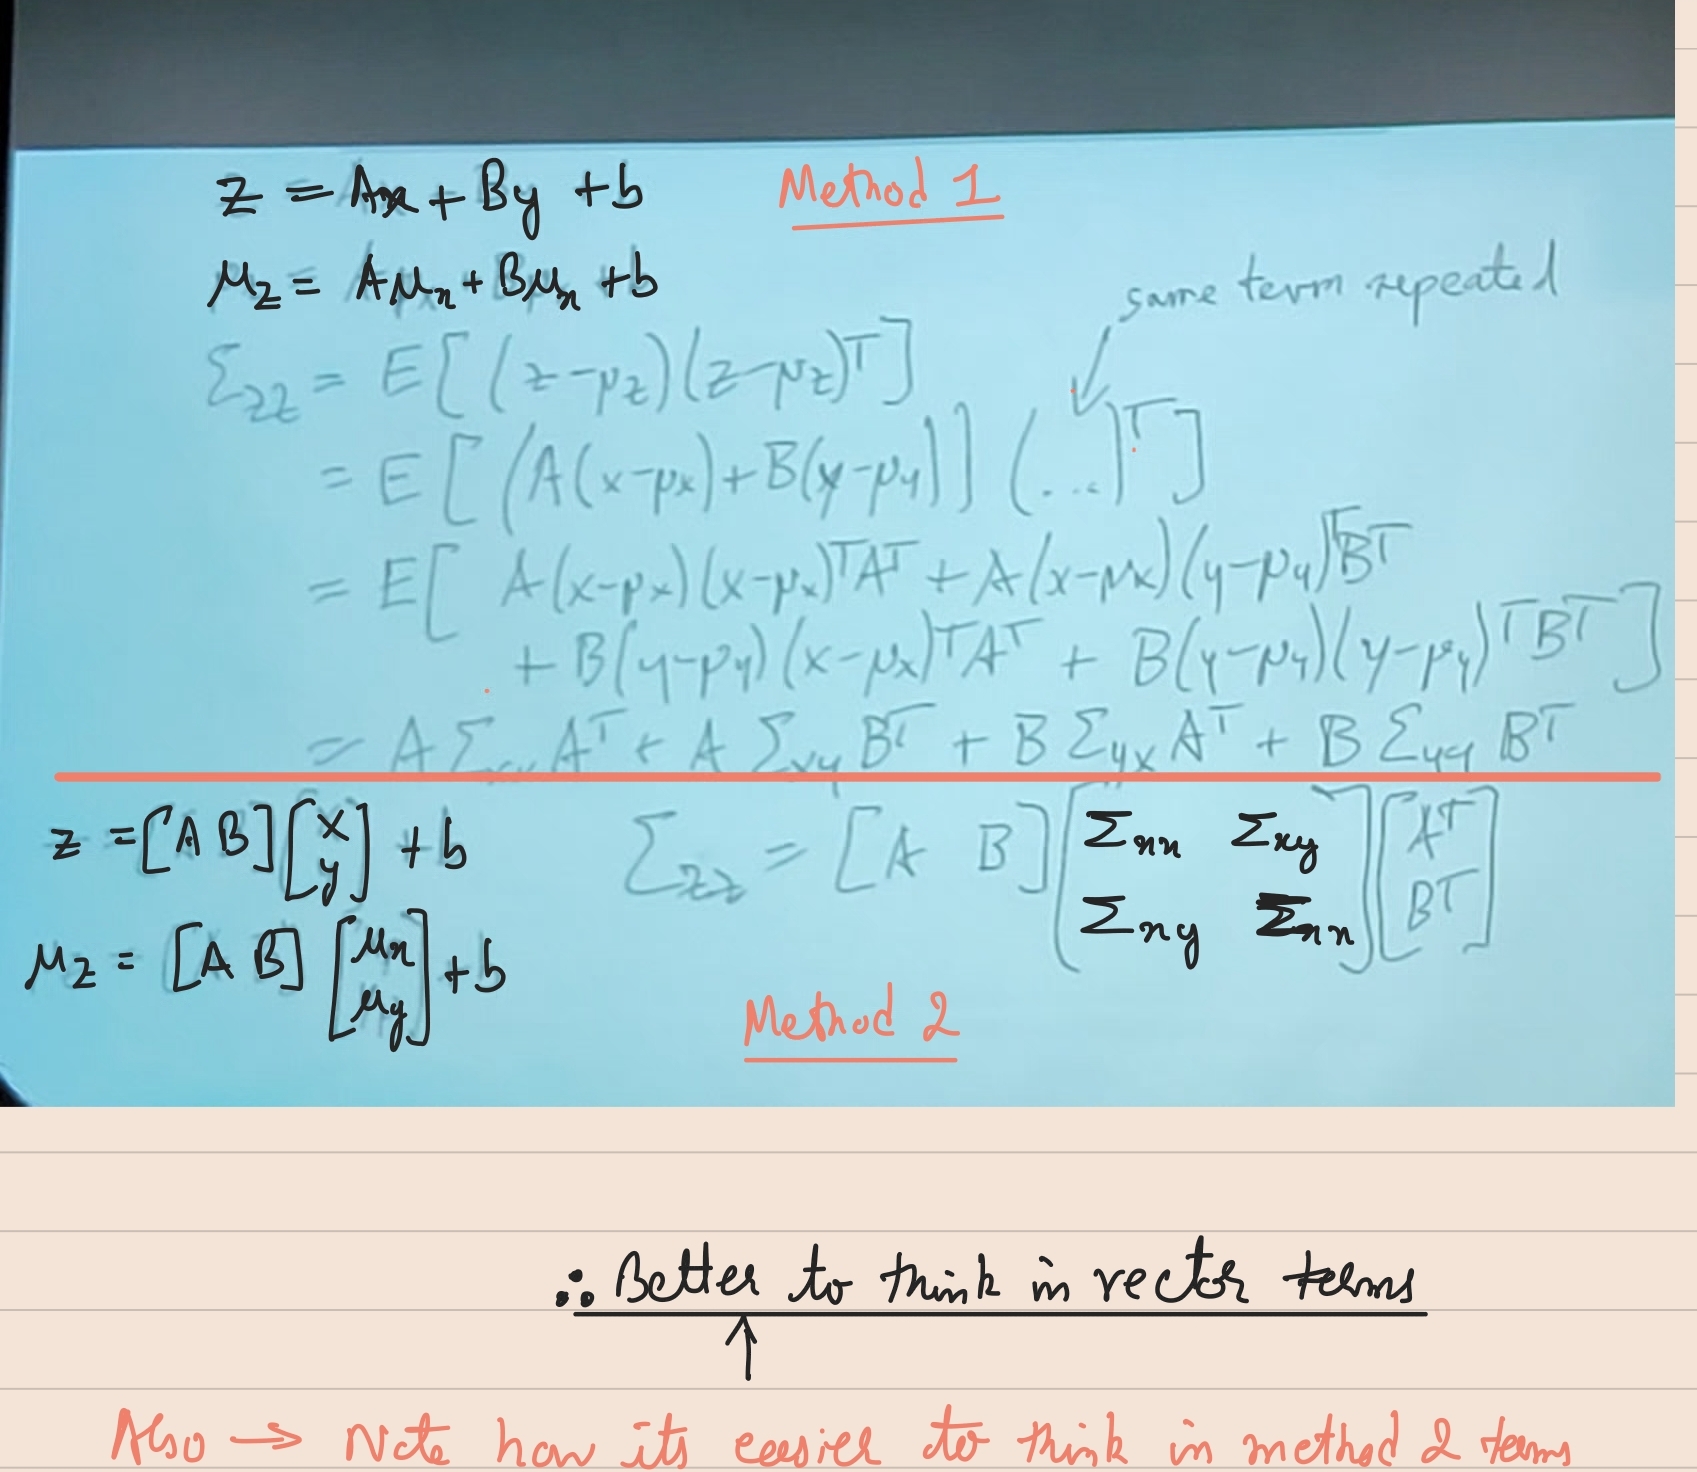 z = Ax + By + b
Method 1
μz = Aμx + Bμx + b
same term repeated
Σzz = E[(z-μz)(z-μz)ᵀ]
= E[(A(x-μx)+B(y-μy)](...)ᵀ]
= E[ A(x-μx)(x-μx)ᵀAᵀ + A(x-μx)(y-μy)ᵀBᵀ
+ B(y-μy)(x-μx)ᵀAᵀ + B(y-μy)(y-μy)ᵀBᵀ ]
= A Σxx Aᵀ + A Σxy Bᵀ + B Σyx Aᵀ + B Σyy Bᵀ
z = [A B] [x y] + b
Σzz = [A B] [Σxx Σxy
Σxy Σxx] [Aᵀ Bᵀ]
μz = [A B] [μx μy] + b
Method 2
∴ Better to think in vector terms
↑
Also → Note how its easier to think in method 2 terms